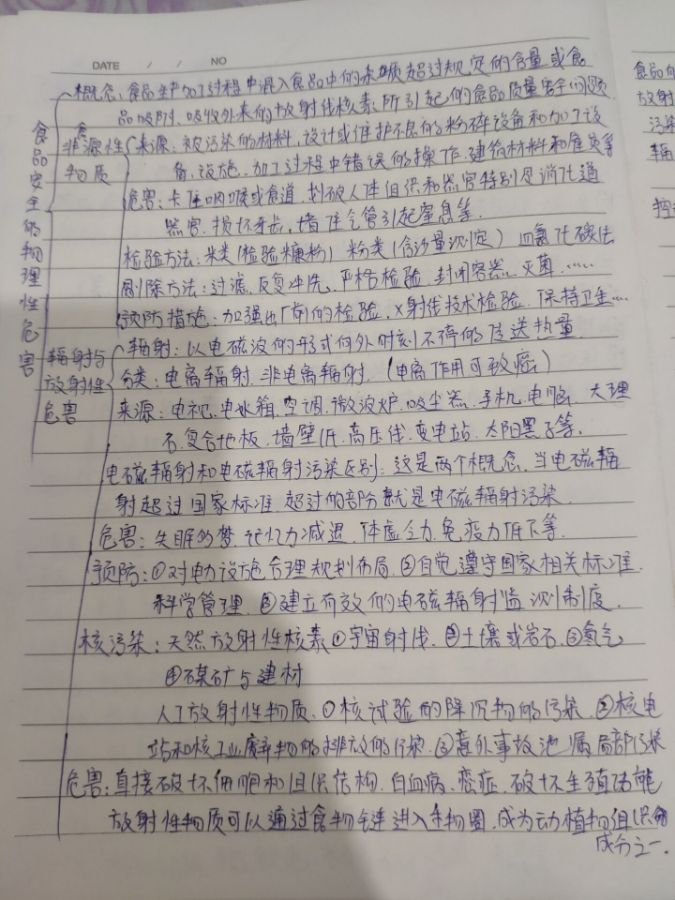 DATE / / NO
概念:食品生产加工过程中混入食品中的杂质超过规定的含量或食
品吸附、吸收外来的放射线核素,所引起的食品质量安全问题
食品安全的物理性危害
食源性物质
来源:被污染的材料,设计或维护不良的粉碎设备和加工设
备、设施,加工过程中错误的操作,建筑材料和雇员等
危害:卡住咽喉或食道,划破人体组织和器官特别是消化道
器官,损坏牙齿,堵住气管引起窒息等.
检验方法:米类(检验糠粉) 粉类(含沙量测定) 四氯化碳法
剔除方法:过滤,反复冲洗,严格检验,封闭容器,灭菌……
预防措施:加强出厂前的检验,X射线技术检验,保持卫生…
辐射与放射性危害
辐射:以电磁波的形式向外时刻不停的传送热量
分类:电离辐射,非电离辐射.(电离作用可致癌)
来源:电视,电冰箱,空调,微波炉,吸尘器,手机,电脑,大理
石,复合地板,墙壁纸,高压线,变电站,太阳黑子等.
电磁辐射和电磁辐射污染区别:这是两个概念,当电磁辐
射超过国家标准,超过的部分就是电磁辐射污染.
危害:失眠多梦,记忆力减退,体虚乏力,免疫力低下等.
预防:①对电力设施合理规划布局,②自觉遵守国家相关标准,
科学管理,③建立有效的电磁辐射监测制度.
核污染:天然放射性核素①宇宙射线,②土壤或岩石,③氡气
④煤矿与建材
人工放射性物质,①核试验的降沉物的污染,②核电
站和核工业废弃物的排放的污染,③意外事故泄漏局部污染
危害:直接破坏细胞和组织结构,白血病,癌症,破坏生殖功能
放射性物质可以通过食物链进入生物圈,成为动植物组织的
成分之一.
食品的
放射
污染
辐